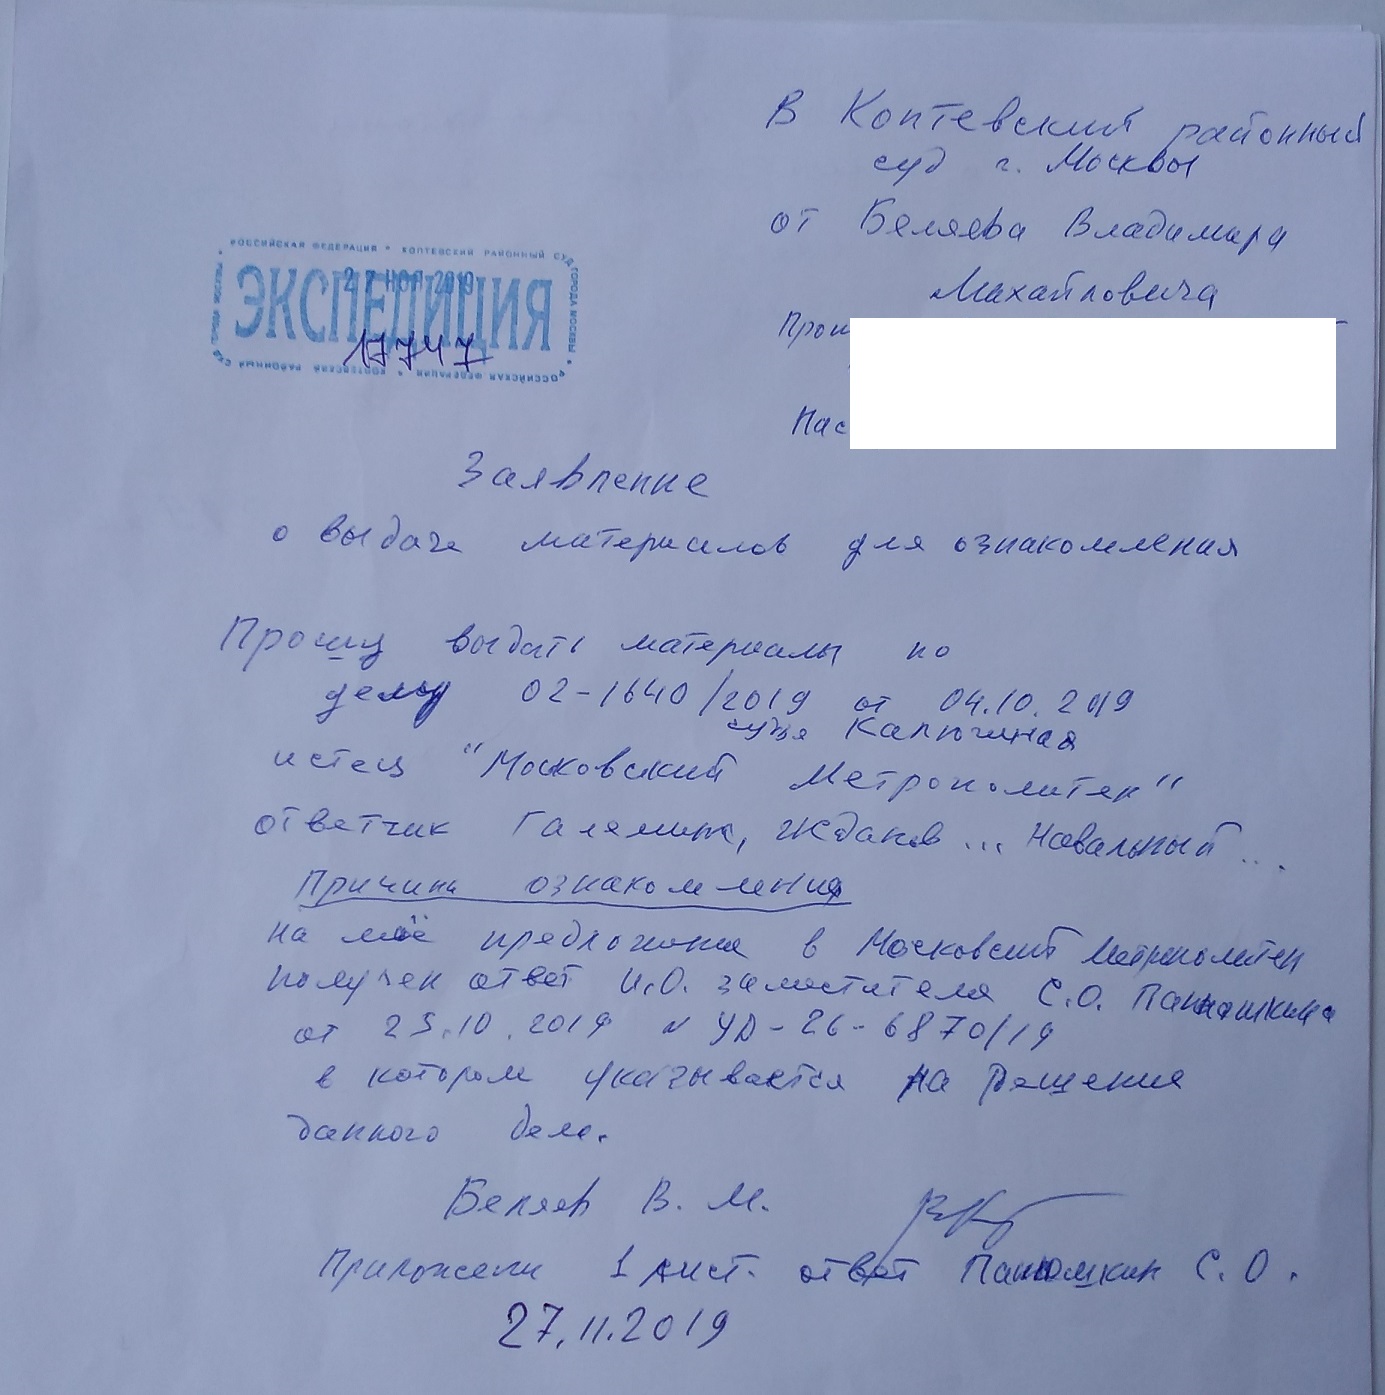 В Коптевский районный
суд г. Москвы
от Беляева Владимира
Михайловича
РОССИЙСКАЯ ФЕДЕРАЦИЯ * КОПТЕВСКИЙ РАЙОННЫЙ СУД ГОРОДА МОСКВЫ *
27 НОЯ 2019
ЭКСПЕДИЦИЯ
17747
РОССИЙСКАЯ ФЕДЕРАЦИЯ * КОПТЕВСКИЙ РАЙОННЫЙ СУД
Прош
Пас
Заявление
о выдаче материалов для ознакомления
Прошу выдать материалы по
делу 02-1640/2019 от 04.10.2019
судья Калюжная
истец "Московский Метрополитен"
ответчик Галямина, Жданов ... Навальный ...
Причина ознакомления
на моё предложение в Московский Метрополитен
получен ответ И.О. заместителя С.О.
от 25.10.2019 N УД-26-6870/19
в котором указывается на Решение
данного дела.
Беляев В. М.
Приложение 1 лист. ответ Панюшкин С. О.
27.11.2019